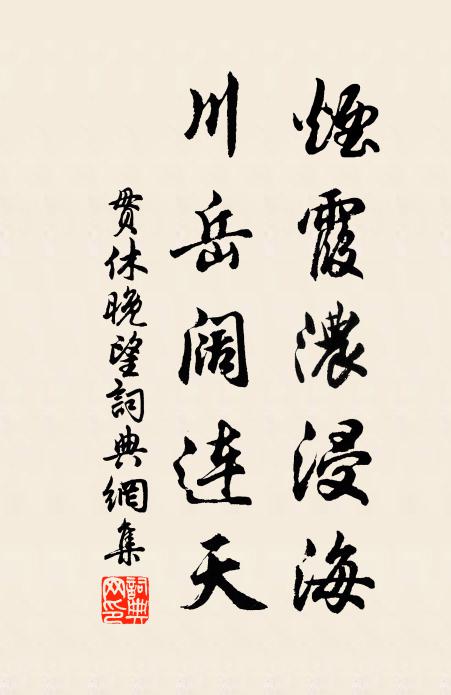 煙霞濃浸海
川岳阔连天
贯休晚望詞典網集
詞典网印